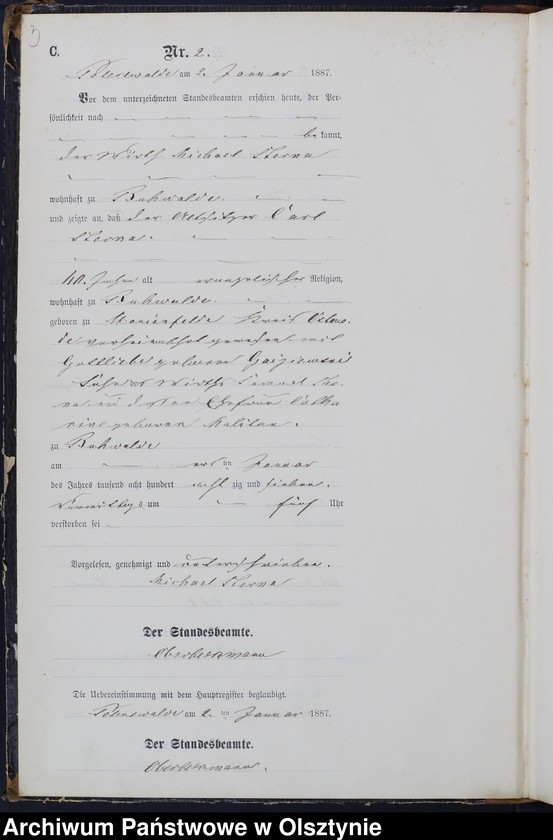 3
C. Nr. 2.
am 2. Januar 1887.
Vor dem unterzeichneten Standesbeamten erschien heute, der Per-
sönlichkeit nach
be kannt,
der Wirth Michael Sterna
wohnhaft zu Buhwalde.
und zeigte an, daß der Altsitzer Carl
Sterna.
Jahre alt evangelischer Religion,
wohnhaft zu Buhwalde.
geboren zu Marienfelde Kreis Ostero-
de verheirathet gewesen mit
Gottliebe geborene
Sohn des Wirths Samuel Ster-
na und dessen Ehefrau Catha
rine geborenen
zu Buhwalde
am ten Januar
des Jahres tausend acht hundert acht zig und sieben.
Vormittags um fünf Uhr
verstorben sei
Vorgelesen, genehmigt und unterschrieben.
Michael Sterna
Der Standesbeamte.
Die Uebereinstimmung mit dem Hauptregister beglaubigt.
am 2. ten Januar 1887.
Der Standesbeamte.
Archiwum Państwowe w Olsztynie